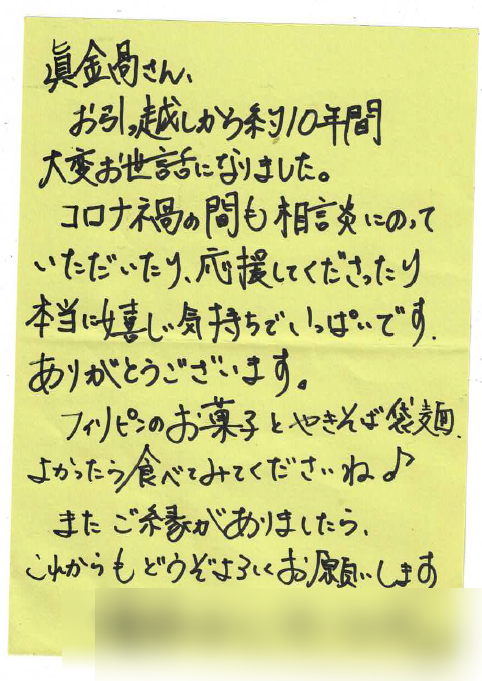 眞金髙さん、
お引っ越しから約10年間
大変お世話になりました。
コロナ禍の間も相談にのって
いただいたり、応援してくださったり
本当に嬉しい気持ちでいっぱいです.
ありがとうございます。
フィリピンのお菓子とやきそば袋麺、
よかったら食べてみてくださいね♪
またご縁がありましたら、
これからもどうぞよろしくお願いします